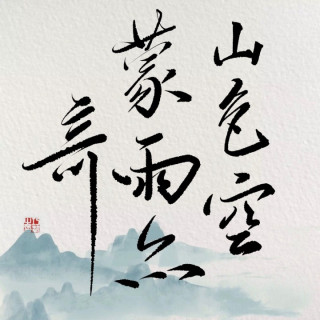 山色空
蒙雨亦
奇